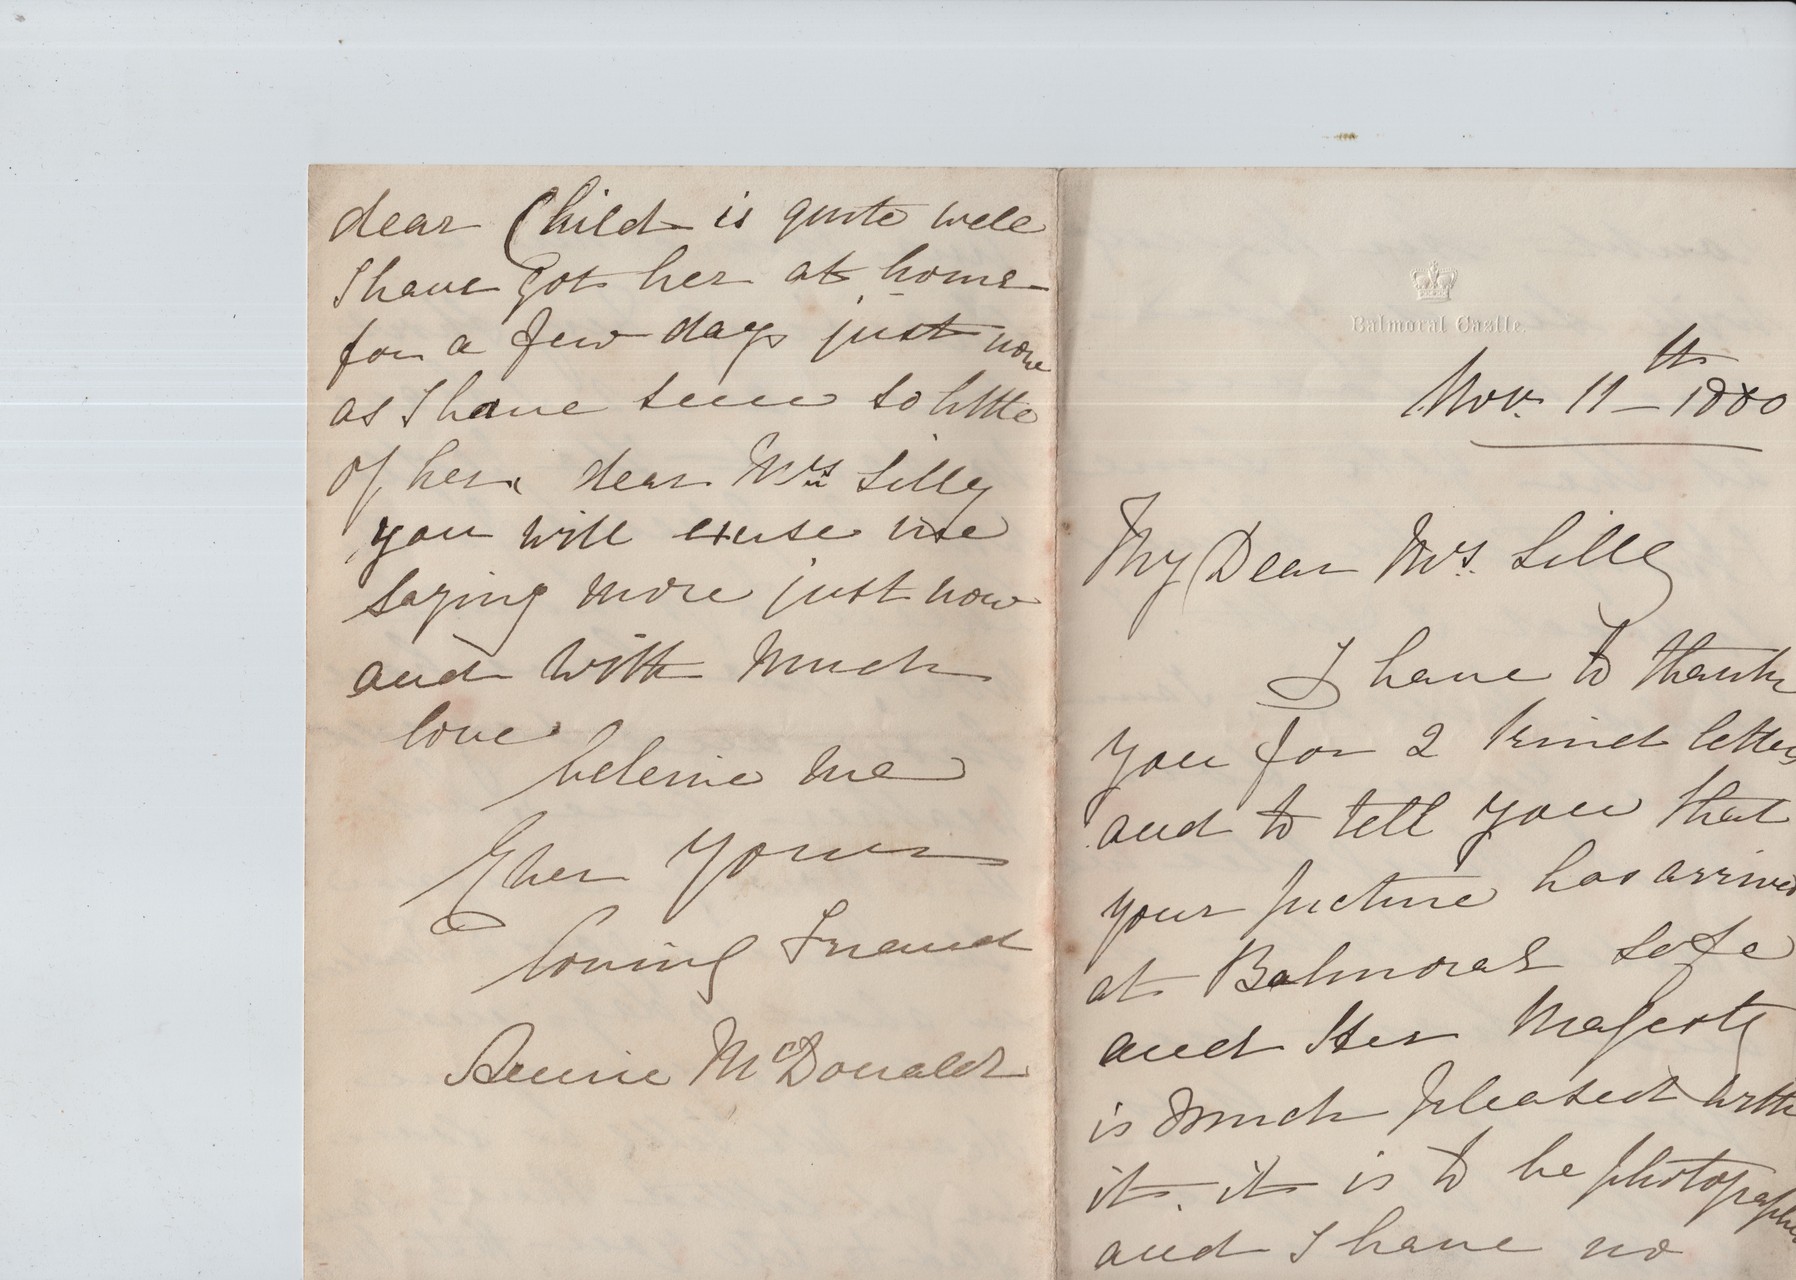 dear Child is quite well
I have got her at home
for a few days just now
as I have seen so little
of her. dear Mrs Lilly
you will excuse me
saying more just now
and with much
love
believe me
Ever yours
loving Friend
Annie McDonald
Balmoral Castle.
Nov. 11th 1880
My Dear Mrs. Lilly
I have to thank
you for 2 kind letters
and to tell you that
your picture has arrived
at Balmoral safe
and Her Majesty
is much pleased with
it. it is to be photographed
and I have no